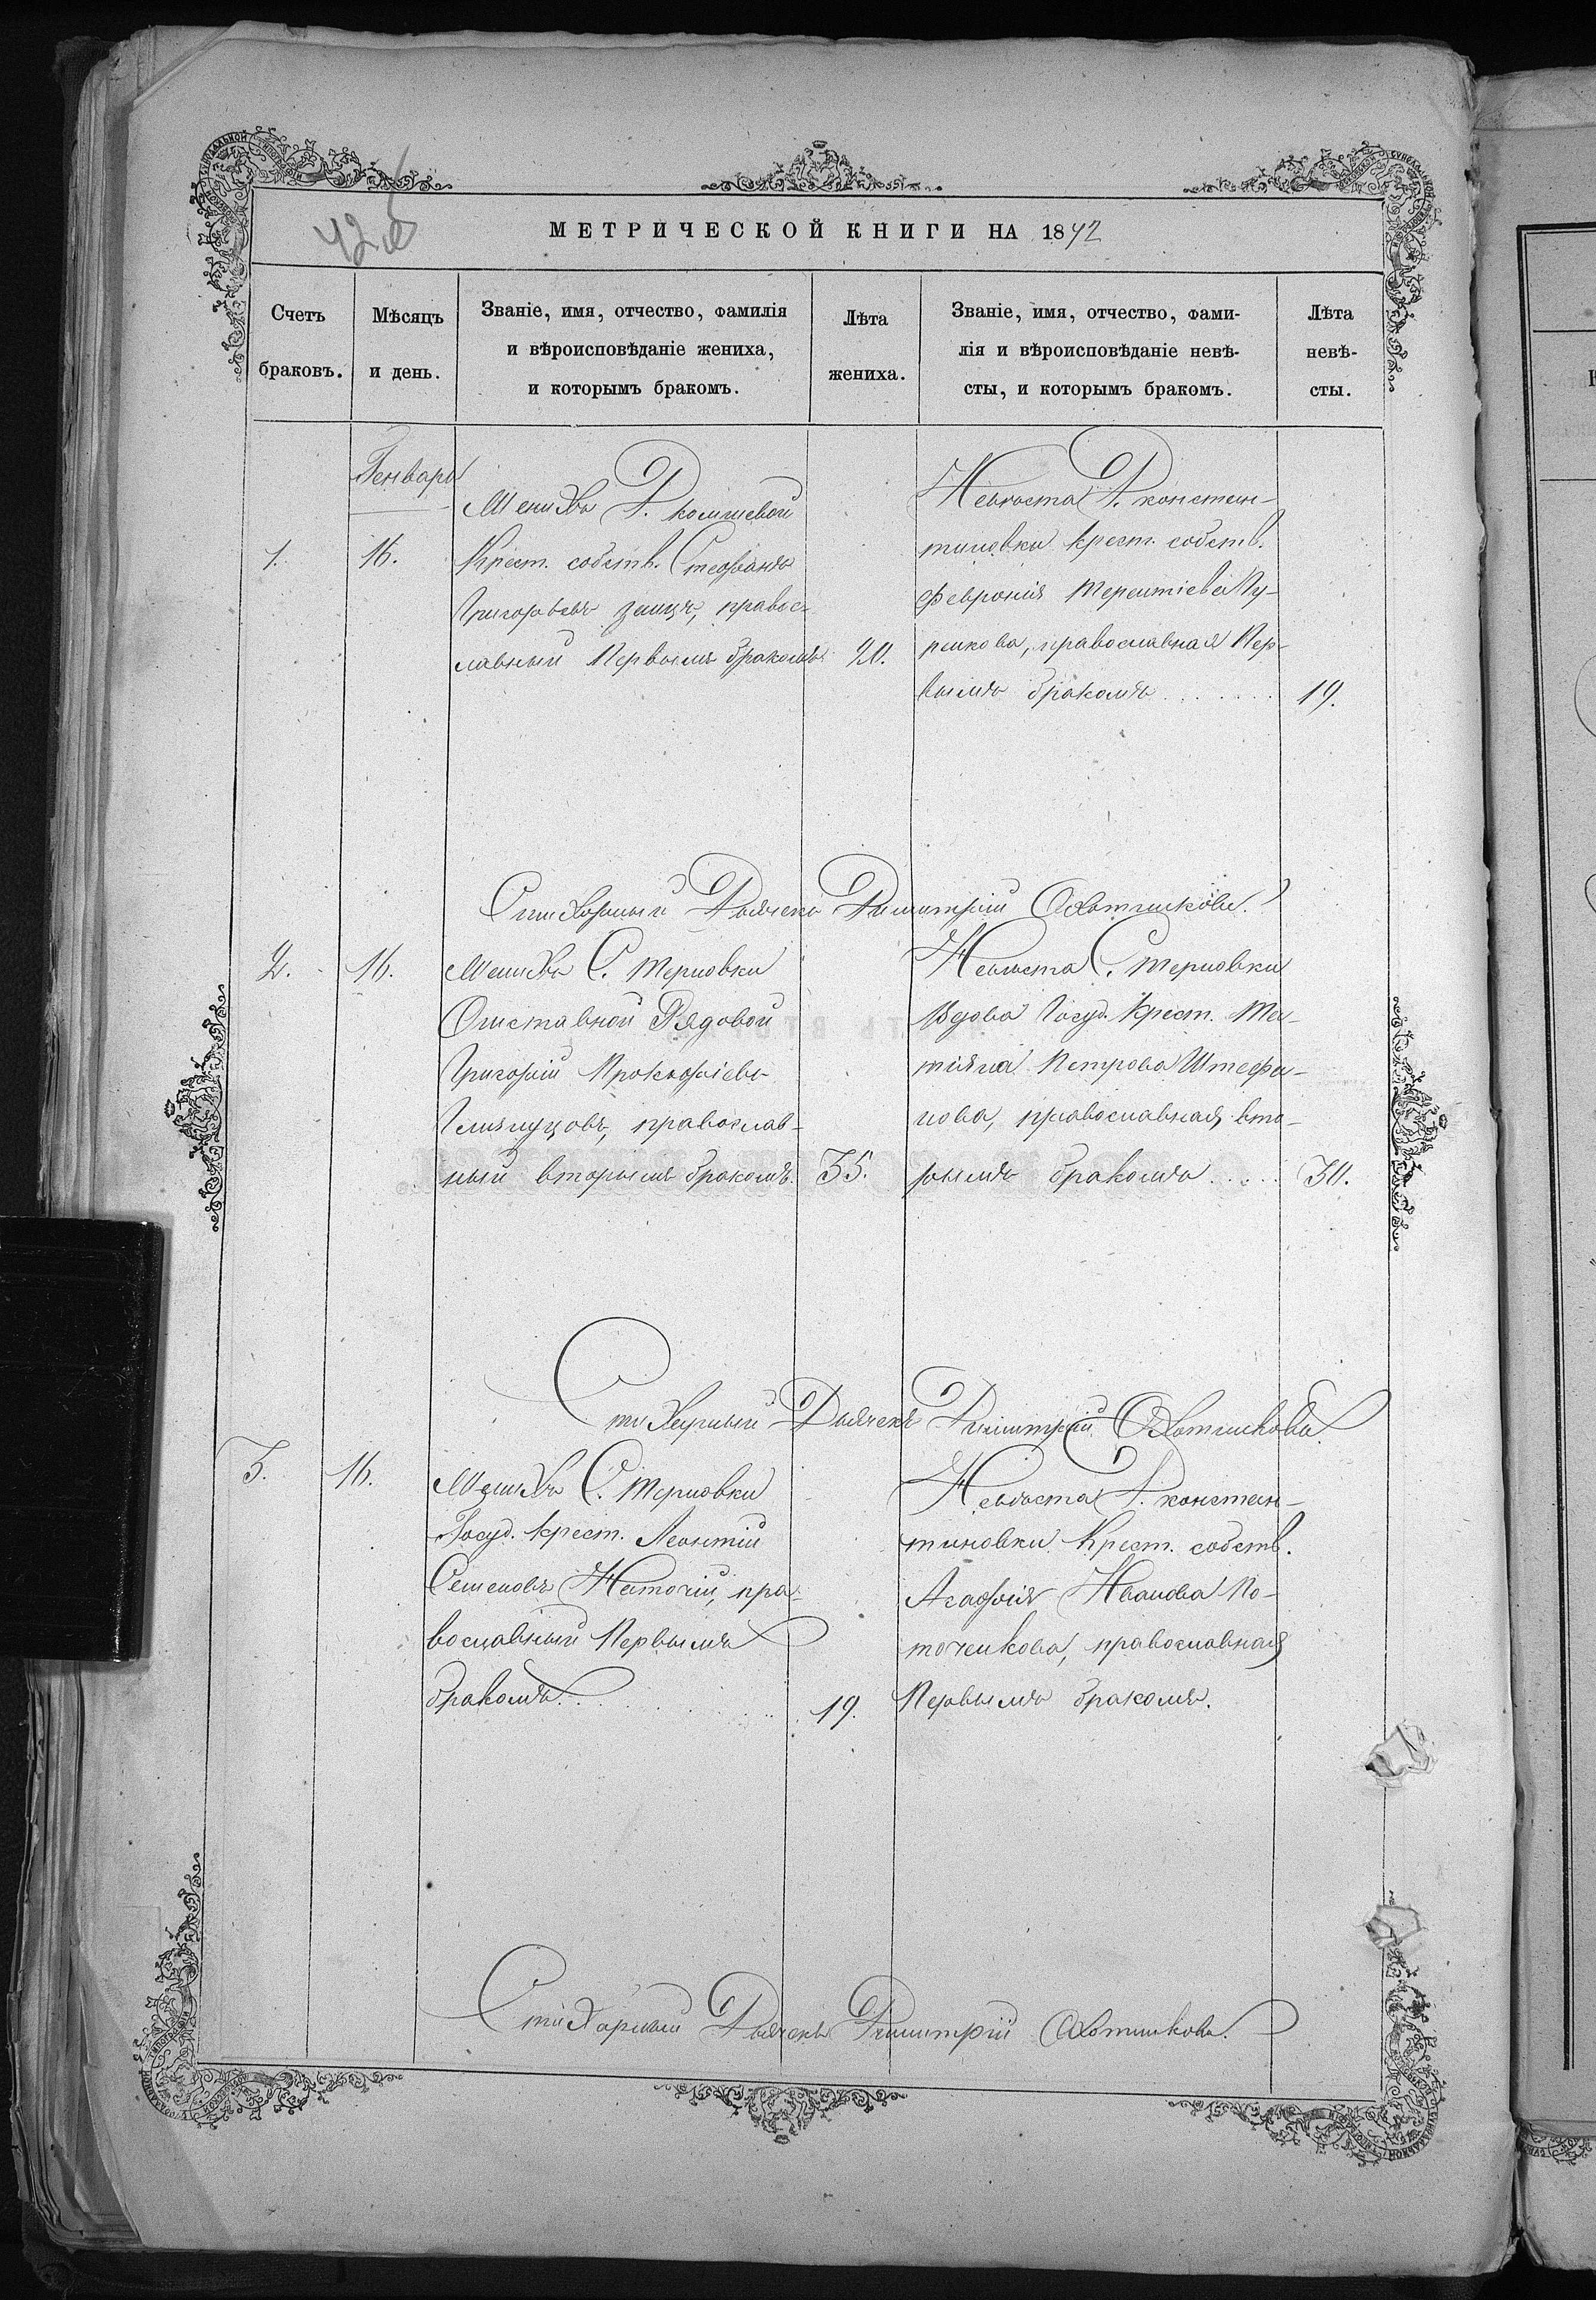 42 об
МЕТРИЧЕСКОЙ КНИГИ НА 1872
Счетъ браковъ.
Мѣсяцъ и день.
Званіе, имя, отчество, фамилія
и вѣроисповѣданіе жениха,
и которымъ бракомъ.
Лѣта жениха.
Званіе, имя, отчество, фами-
лія и вѣроисповѣданіе невѣ-
сты, и которымъ бракомъ.
Лѣта невѣ-
сты.
Генварь
1.
16.
Женихъ Д.
Крест. собств. Стефанъ
Григорьевъ Заицъ, правос-
лавный Первымъ бракомъ
20.
Невѣста Д. Констан-
тиновки Крест. собств.
Феврония Терентіева Пу-
рикова, православная Пер-
вымъ бракомъ . . . . . . .
19.
Стихарный Дьячекъ Димитрій Охотниковъ.
2.
16.
Женихъ С. Терновки
Отставной Рядовой
Григорій Прокофіевъ
православ-
ный вторымъ бракомъ.
35.
Невѣста С. Терновки
Вдова Госуд. Крест. Та-
тіяна Петрова Штефа-
нова, православная, вто-
рымъ бракомъ . . . . .
30.
Стихарный Дьячекъ Димитрій Охотниковъ.
3.
16.
Женихъ С. Терновки
Госуд. Крест. Леонтій
Семеновъ Наточій, пра-
вославный Первымъ
бракомъ . . .
19.
Невѣста Д. Констан-
тиновки Крест. собств.
Агафія Иванова По-
точникова, православная
Первымъ бракомъ.
Стихарный Дьячекъ Димитрій Охотниковъ.